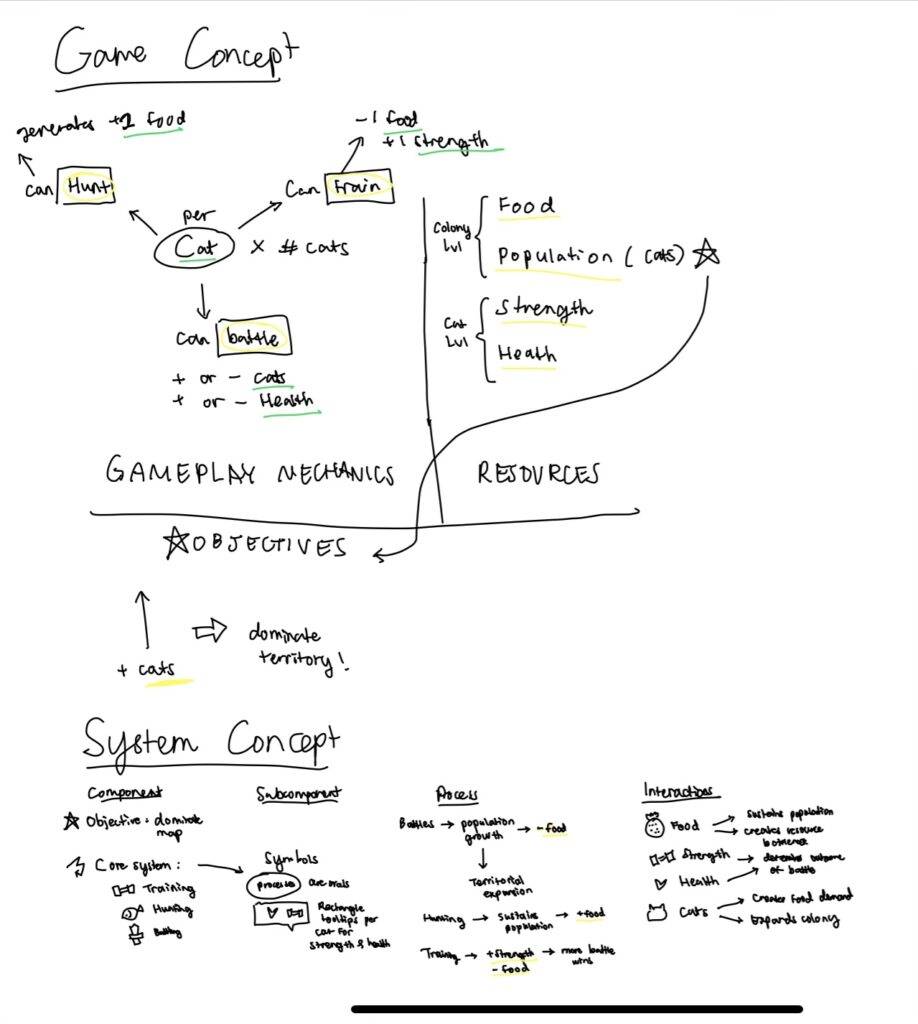 Game Concept
generates +2 food
-1 food
+1 strength
can Hunt
Can Train
per
Cat x # cats
can battle
+ or - cats
+ or - Health
Colony Lvl
Food
Population (cats)
Cat Lvl
Strength
Health
GAMEPLAY MECHANICS
RESOURCES
OBJECTIVES
+ cats
dominate
territory!
System Concept
Component
Objective: dominate
map
Core system:
Training
Hunting
Battling
Subcomponent
Symbols
processes are ovals
Rectangle
tooltips per
cat for
strength & health
Process
Battles → population
growth → - food
Territorial
expansion
Hunting → sustains
population → + food
Training → + strength → more battle
wins
- food
Interactions
Food
sustains population
creates resource
Strength → determines outcome
of battle
Health
Cats
Creates food demand
Expands colony